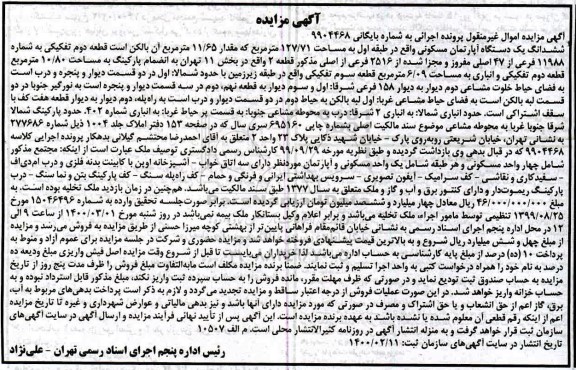 آگهی مزایده
آگهی مزایده اموال غیرمنقول پرونده اجرائی به شماره بایگانی ۹۹۰۴۴۶۸
ششدانگ یک دستگاه آپارتمان مسکونی واقع در طبقه اول به مساحت ۱۲۷/۷۱ مترمربع که مقدار ۱۱/۶۵ مترمربع آن بالکن است قطعه دوم تفکیکی به شماره
۱۱۹۸۸ فرعی از ۴۷ اصلی مفروز و مجزا شده از ۲۵۱۶ فرعی از اصلی مذکور قطعه ۲ واقع در بخش ۱۱ تهران به انضمام پارکینگ به مساحت ۱۰/۸۰ مترمربع
قطعه دوم تفکیکی و انباری به مساحت ۶/۰۹ مترمربع قطعه سوم تفکیکی واقع در طبقه زیرزمین با حدود شمالا: اول در دو قسمت دیوار و پنجره و درب است
به فضای حیاط خلوت مشاعی دوم به دیوار ۱۵۸ فرعی شرقا: اول و سوم دیوار به قطعه نهم، دوم در سه قسمت دیوار و پنجره است به نورگیر جنوبا در دو
قسمت لبه بالکن است به فضای حیاط مشاعی غربا: اول لبه بالکن به حیاط دوم در دو قسمت دیوار و درب است به راه‌پله، دوم دیوار به دیوار قطعه هفت کف با
سقف اشتراکی است. حدود انباری شمالا: به انباری ۲ شرقا: درب به محوطه مشاعی جنوبا: به قسمت پر حیاط غربا: به انباری ۴.۲. حدود پارکینگ شمالا
شرقا جنوبا غربا به محوطه مشاعی موضوع سند مالکیت اصلی شماره چاپی ۶۹۵۱۶۰ سری سال که در صفحه ۱۵۳ دفتر املاک جلد ۱۰۴ ذیل شماره ۲۷۷۶۸۶
به نشانی تهران، خیابان شریعتی روبه‌روی پارک - خیابان شهید ذکایی پلاک ۲۳ واحد ۲ متعلق به آقای احمدرضا محتشم گیلانی بدهکار پرونده اجرایی کلاسه
۹۹۰۴۴۶۸ که در قبال بدهی وی بازداشت گردیده و طبق نظریه مورخه ۹۹/۰۹/۲۴ کارشناس رسمی دادگستری توصیف ملک عبارت است از اینکه: مجتمع مذکور
شامل چهار واحد مسکونی و هر طبقه شامل یک واحد مسکونی و آپارتمان موردنظر دارای سه اتاق خواب - آشپزخانه اوپن با کابینت بدنه فلزی و درب ام‌دی‌اف
- سفیدکاری و نقاشی - کف سرامیک - آیفون تصویری - سرویس بهداشتی ایرانی و فرنگی و حمام - کف راه‌پله سنگ - کف پارکینگ بتن و نما سنگ - درب
پارکینگ ریموت‌دار و دارای کنتور برق و آب و گاز و ملک متعلق به سال ۱۳۷۷ طبق سند مالکیت می‌باشد. همچنین در زمان بازدید ملک تخلیه بوده است. به
مبلغ ۴۶/۰۰۰/۰۰۰/۰۰۰ ریال معادل چهار میلیارد و ششصد میلیون تومان ارزیابی گردیده است. برابر صورت‌جلسه تحقیق وارده به شماره ۱۵۰۶۴۴۹۶ مورخ
۱۳۹۹/۰۸/۲۵ تنظیمی توسط مامور اجراء، ملک تخلیه می‌باشد و برابر اعلام وکیل بستانکار ملک بیمه نمی‌باشد در روز شنبه مورخ ۱۴۰۰/۰۳/۰۱ از ساعت ۹ الی
۱۲ در محل اداره پنجم اجرای اسناد رسمی به نشانی خیابان قائم‌مقام فراهانی پایین‌تر از بهشتی کوچه میرزا حسنی از طریق مزایده به فروش می‌رسد و مزایده
از مبلغ چهل و شش میلیارد ریال شروع و به بالاترین قیمت پیشنهادی فروخته خواهد شد و مزایده حضوری و شرکت در جلسه مزایده برای عموم آزاد و منوط به
پرداخت ۱۰ (ده) درصد از مبلغ پایه کارشناسی به حساب اداره می‌باشد لذا خریداران می‌بایست تا قبل از شروع وقت مزایده اصل فیش واریزی مبلغ ودیعه ده
درصد به نام خود را همراه درخواست کتبی به واحد اجرا تسلیم و ثبت نمایند. ضمنا برنده مزایده مکلف است مابه‌التفاوت مبلغ فروش را ظرف مدت پنج روز از تاریخ
مزایده به حساب صندوق ثبت تودیع نماید و در صورتی که ظرف مهلت مقرر، مانده فروش را به حساب سپرده ثبت واریز نکند، مبلغ مذکور قابل استرداد نبوده و به
حساب خزانه واریز خواهد شد. در این صورت عملیات فروش از درجه اعتبار ساقط و مزایده تجدید می‌گردد و لازم به ذکر است پرداخت بدهی‌های مربوط به آب،
برق، گاز اعم از حق انشعاب و یا حق اشتراک و مصرف در صورتی که مورد مزایده دارای آنها باشد و نیز بدهی مالیاتی و عوارض شهرداری و غیره تا تاریخ مزایده
اعم از اینکه رقم قطعی آن معلوم شده یا نشده باشد به عهده برنده مزایده است. این آگهی پس از تأیید نهائی فرایند مزایده و ارسال آگهی در سایت آگهی‌های
سازمان ثبت قرار خواهد گرفت و به منزله انتشار آگهی در روزنامه کثیرالانتشار محلی است. م الف ۱۰۵۰۷
تاریخ انتشار در سایت آگهی‌های سازمان ثبت: ۱۴۰۰/۰۲/۱۱
رئیس اداره پنجم اجرای اسناد رسمی تهران - علی‌نژاد